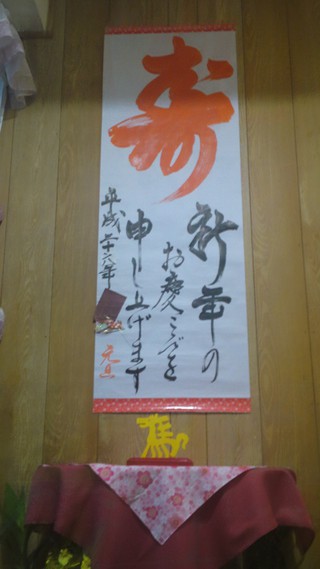 寿
新年の
お慶こびを
申し上げます
平成二十六年
元旦
馬